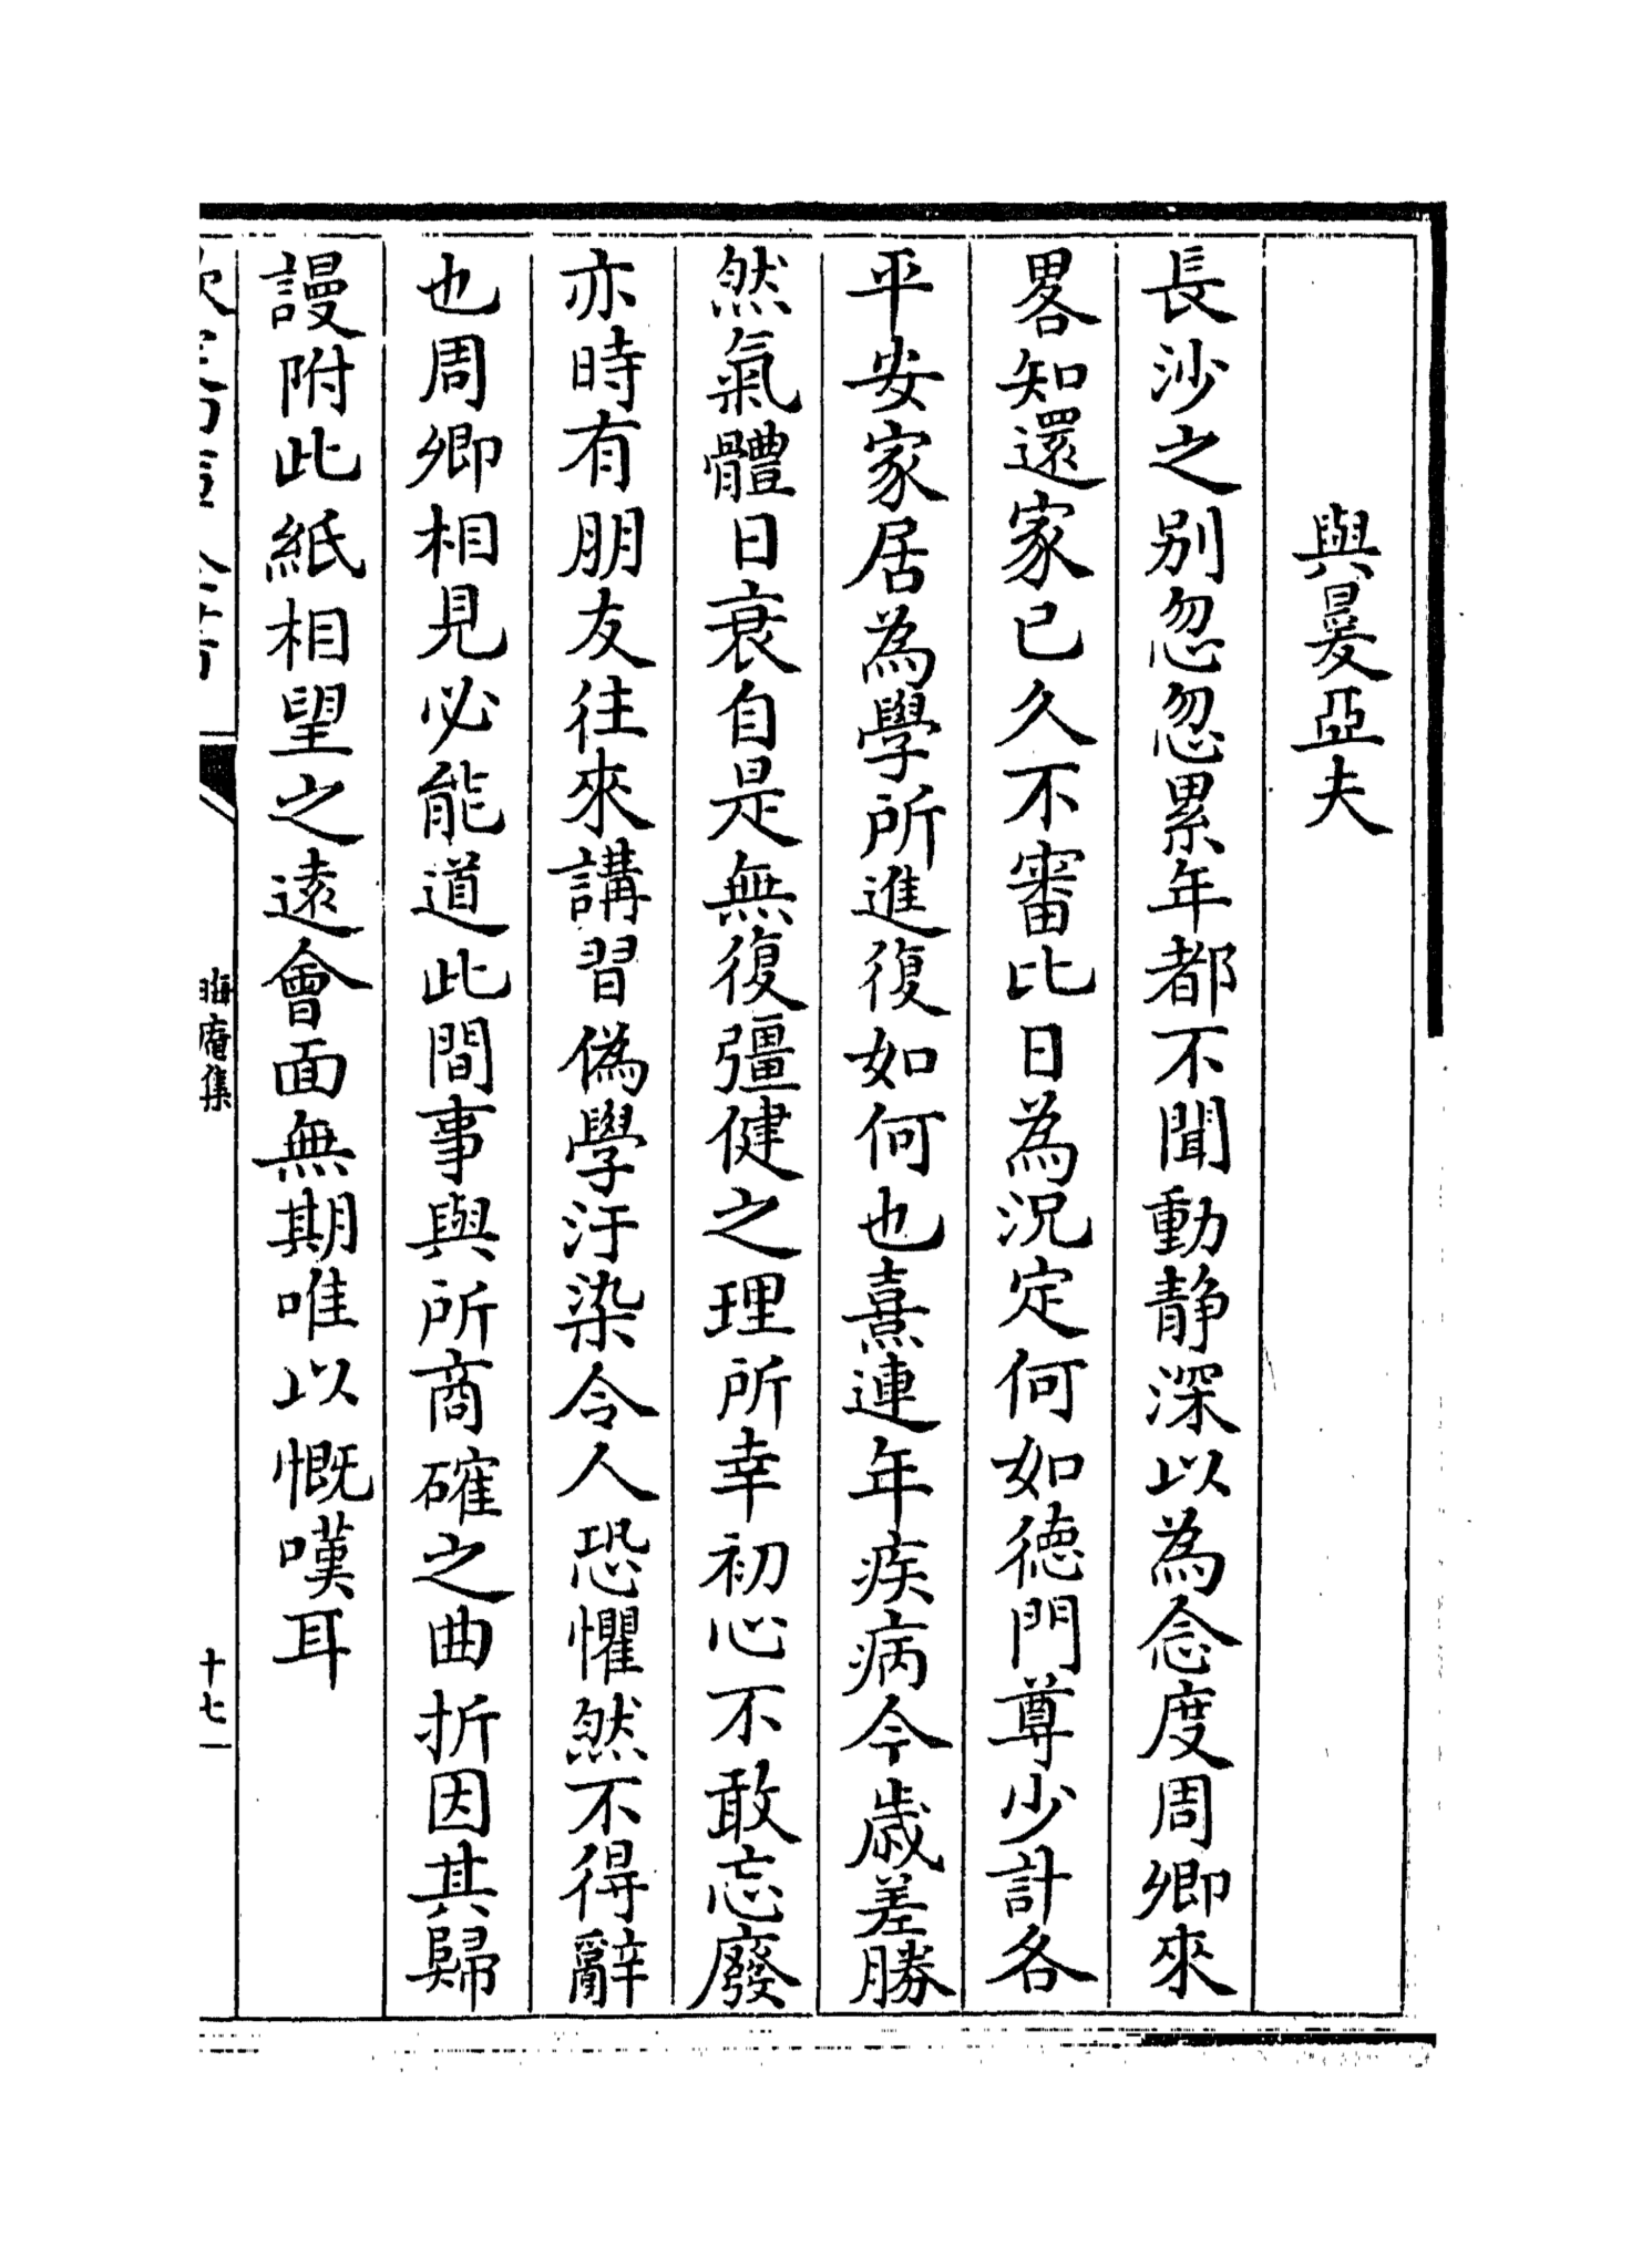 與㬊亞夫
長沙之别忽忽累年都不聞動静深以為念度周卿來
畧知還家已久不審比日為况定何如徳門尊少計各
平安家居為學所進復如何也熹連年疾病今歲差勝
然氣體日衰自是無復彊健之理所幸初心不敢忘廢
亦時有朋友往來講習偽學汙染令人恐懼然不得辭
也周卿相見必能道此間事與所商確之曲折因其歸
謾附此紙相望之逺會面無期唯以慨嘆耳
晦庵集
十七